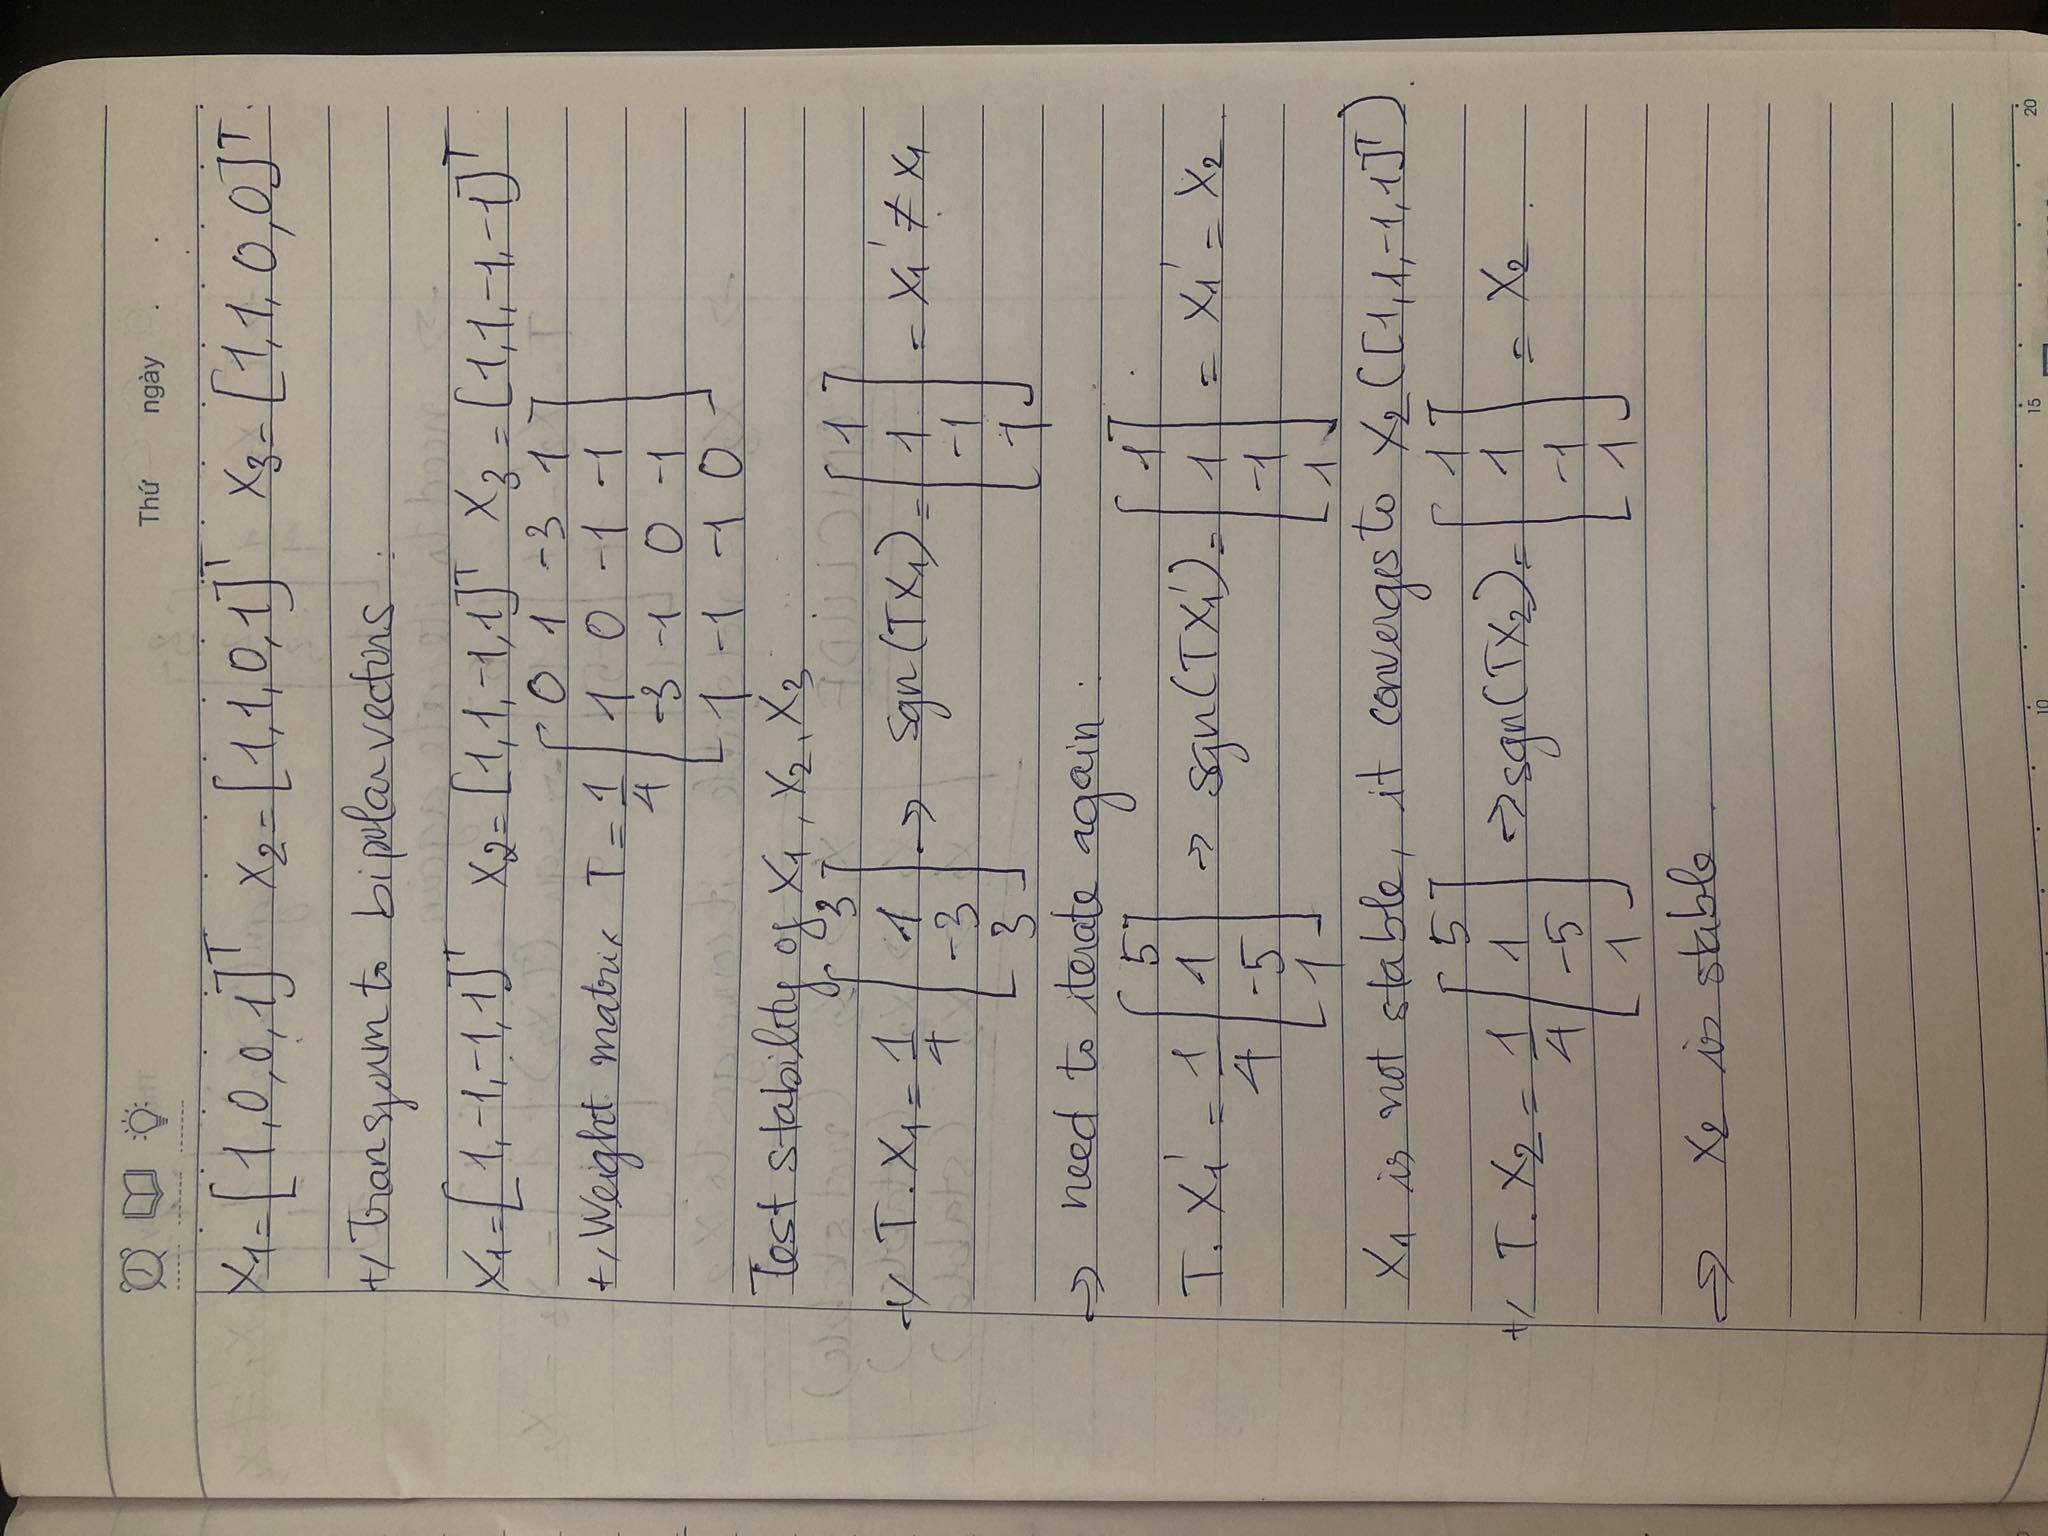 Thứ ngày . .
X₁ = [1, 0, 0, 1]ᵀ X₂ = [1, 1, 0, 1]ᵀ X₃ = [1, 1, 0, 0]ᵀ.
+/ Transform to bipolar vectors :
X₁ = [1, -1, -1, 1]ᵀ X₂ = [1, 1, -1, 1]ᵀ X₃ = [1, 1, -1, -1]ᵀ
+/ Weight matrix T = 1/4 [0 1 -3 1
1 0 -1 -1
-3 -1 0 -1
1 -1 -1 0]
Test stability of X₁, X₂, X₃
+/ T. X₁ = 1/4 [3 1 -3 3] → sgn(TX₁) = [1 1 -1 1] = X₁' ≠ X₁
→ need to iterate again :
T. X₁' = 1/4 [5 1 -5 1] → sgn(TX₁') = [1 1 -1 1] = X₁' = X₂.
X₁ is not stable, it converges to X₂ ([1, 1, -1, 1]ᵀ).
+/ T. X₂ = 1/4 [5 1 -5 1] → sgn(TX₂) = [1 1 -1 1] = X₂.
→ X₂ is stable.
10 15 20